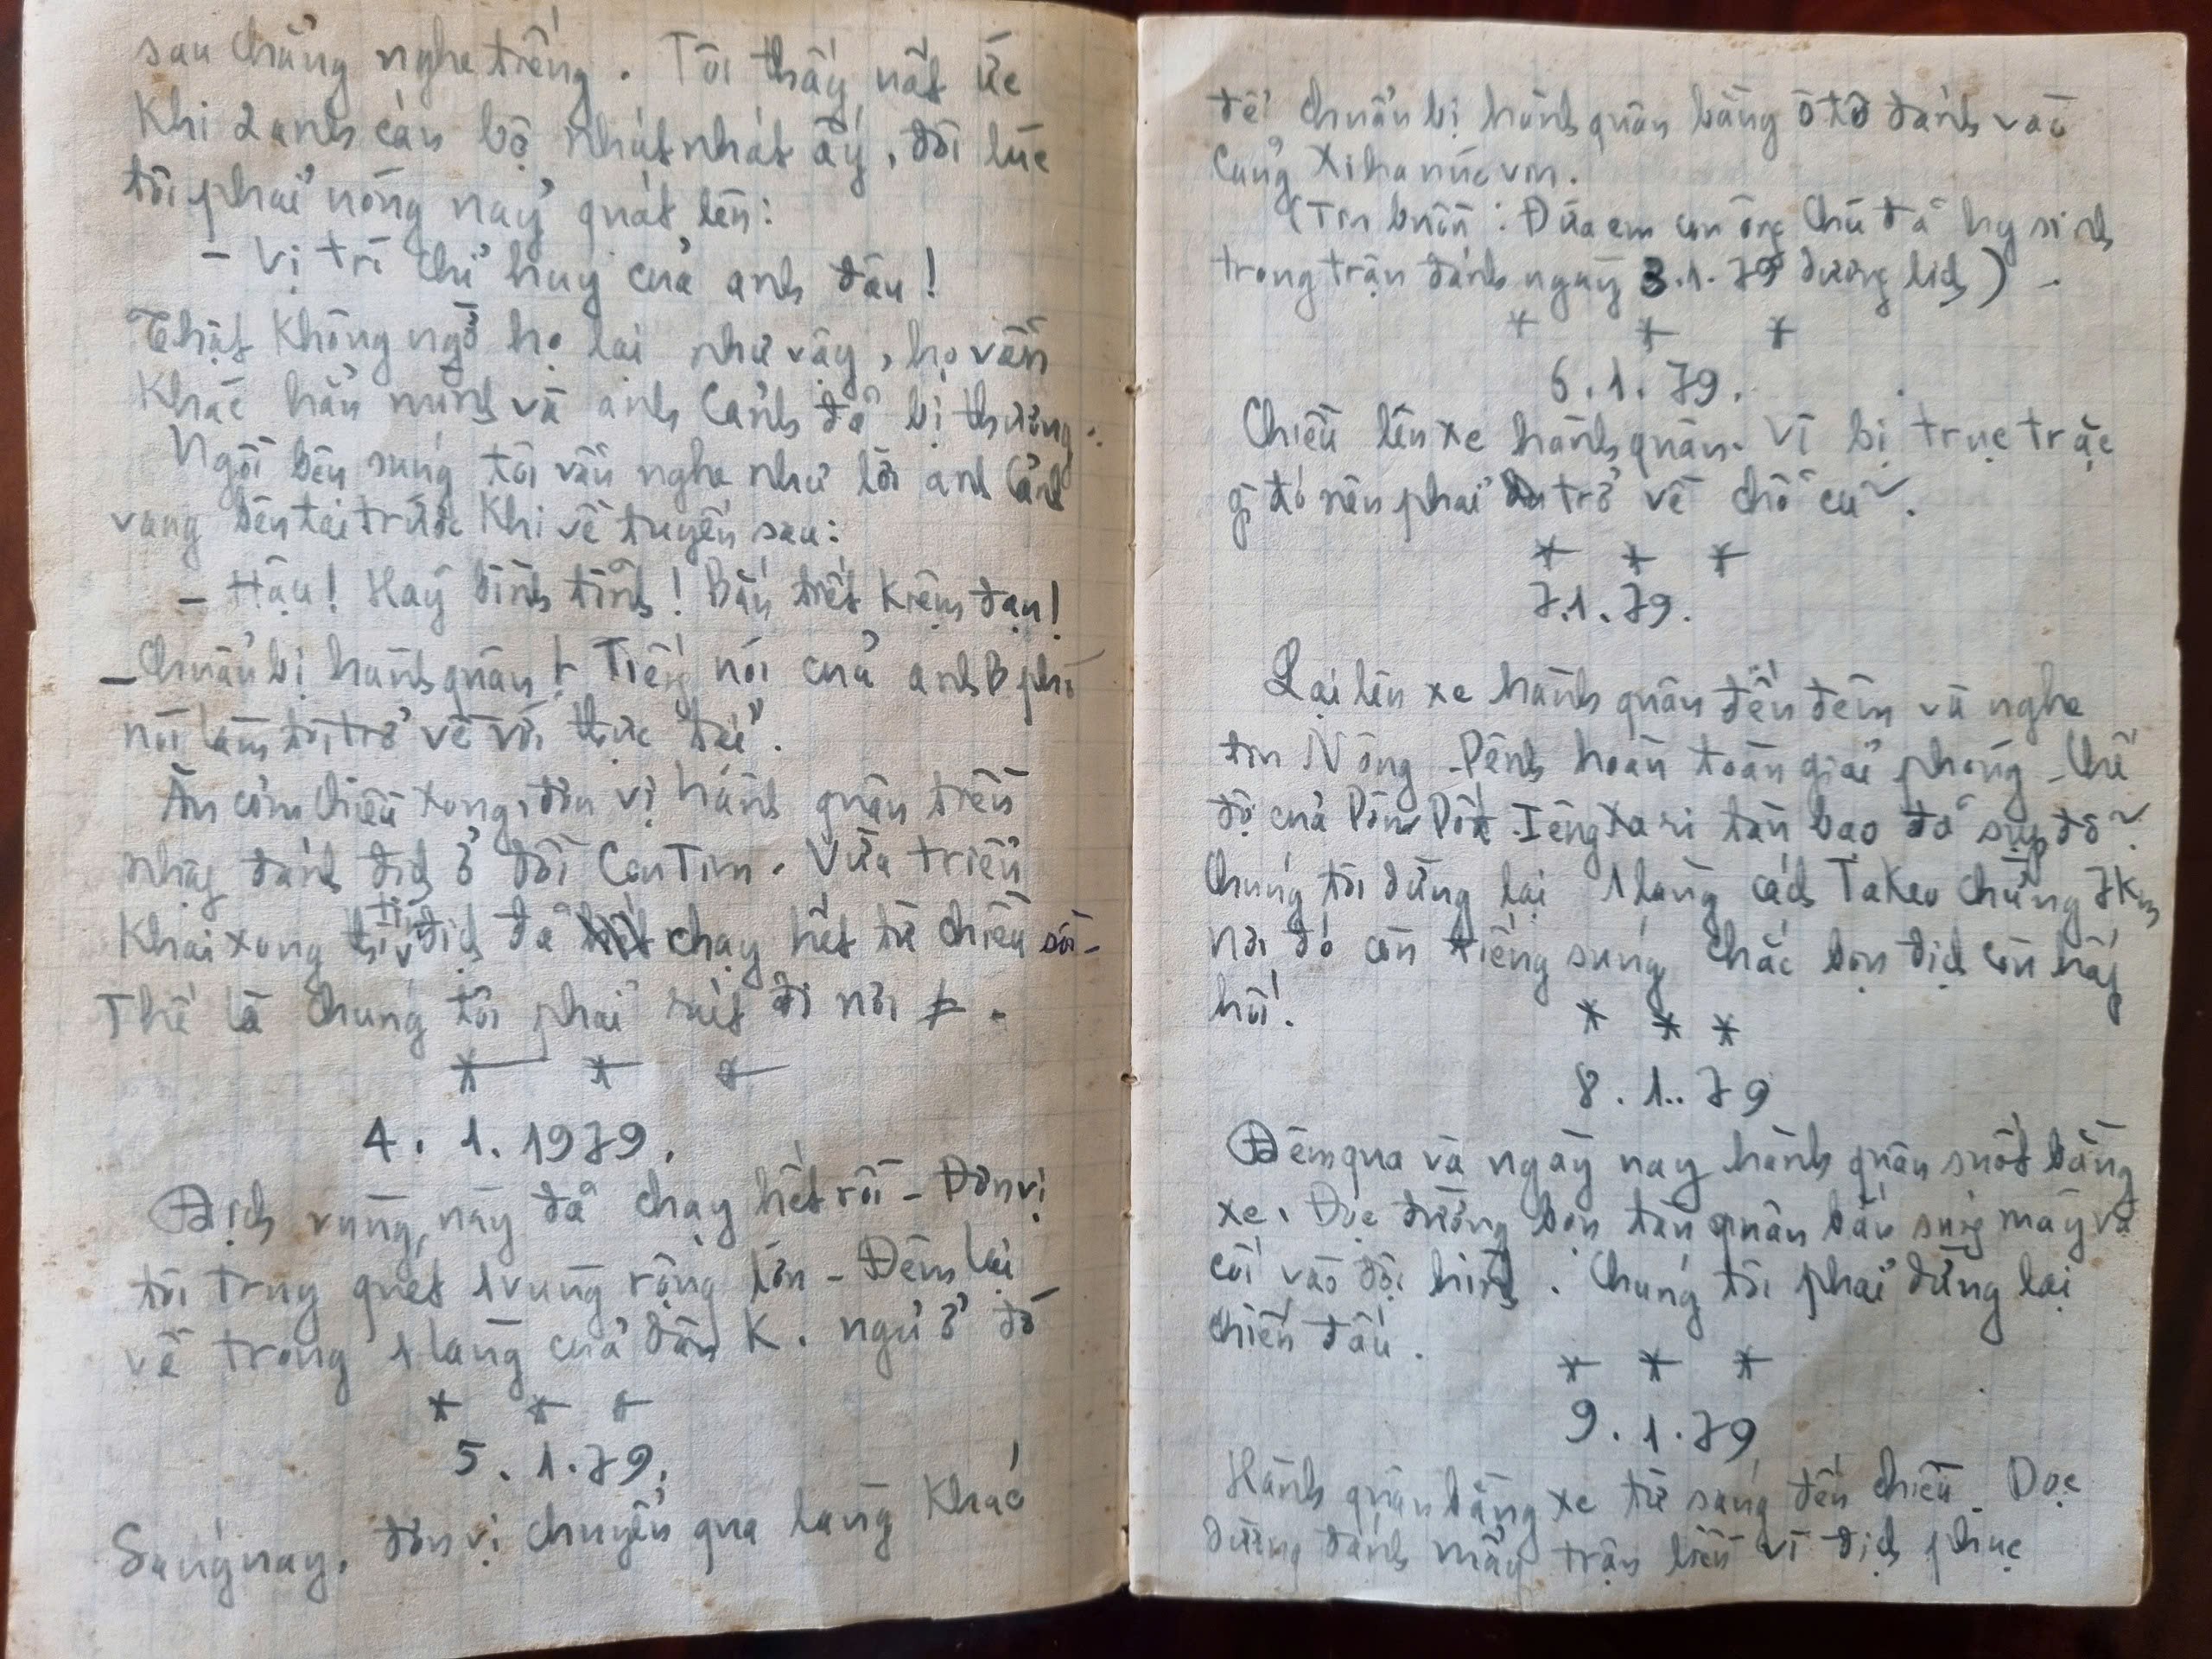 sau chẳng nghe tiếng. Tôi thấy rất ức
Khi 2 anh cán bộ nhát nhát ấy, đôi lúc
tôi phải nóng nảy quát lên:
- Vị trí chỉ huy của anh đâu!
Thật không ngờ họ lại như vậy, họ vẫn
khác hẳn mình và anh Cảnh đã bị thương.
Ngồi bên súng tôi vẫn nghe như lời anh Cảnh
vang bên tai trước khi về tuyến sau:
- Hậu! Hãy bình tĩnh! Bắn tiết kiệm đạn!
- Chuẩn bị hành quân! Tiếng nói của anh B phó
nói làm tôi trở về với thực tại.
Ăn cơm chiều xong, đơn vị hành quân tiến
nhập đánh địch ở đồi Con Tim. Vừa triển
Khai xong thì địch đã chạy hết từ chiều rồi-
Thế là chúng tôi phải rút đi nơi #.
* * *
4. 1. 1979.
Địch vùng này đã chạy hết rồi - Đơn vị
tôi truy quét 1 vùng rộng lớn - Đêm lại
về trong 1 làng của dân K. ngủ ở đó
* * *
5. 1. 79.
Sáng nay, đơn vị chuyển qua làng khác
để chuẩn bị hành quân bằng ô tô đánh vào
Cảng Xihanúcvin.
(Tin buồn: Đứa em con ông chú đã hy sinh
trong trận đánh ngày 3.1.79 dương lịch) -
* * *
6. 1. 79.
Chiều lên xe hành quân. Vì bị trục trặc
gì đó nên phải trở về chỗ cũ.
* * *
7.1.79.
Lại lên xe hành quân đến đêm và nghe
tin Nông-Pênh hoàn toàn giải phóng - Chế
độ của Pôn Pốt Iêngxari tàn bạo đã sụp đổ.
Chúng tôi dừng lại 1 làng cách TaKeo chừng 7Km
nơi đó còn tiếng súng chắc bọn địch còn hấp
hối.
* * *
8. 1.. 79
Đêm qua và ngày nay hành quân suốt bằng
xe. Dọc đường bọn tàn quân bắn súng máy và
cối vào đội hình. Chúng tôi phải dừng lại
chiến đấu.
* * *
9. 1. 79
Hành quân bằng xe từ sáng đến chiều - Dọc
đường đánh mấy trận liền vì địch phục